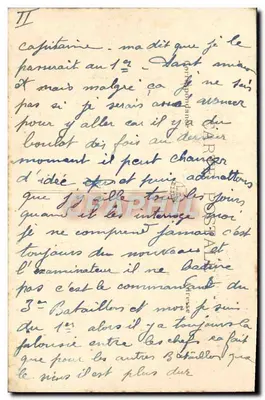 II
capitaine m'a dit que je le
passerait au 1er. Tant mieux
et mais malgré ça je ne sais
pas si je serais assez
pour y aller car il y a du
boulot des fois au dernier
moment il peut changer
d'idée et puis admettons
que je aille tous les jours
quand il les interroge moi
je ne comprend jamais c'est
toujours du nouveau et
l'examinateur il ne
pas c'est le commandant du
3me Bataillon et moi je suis
du 1er alors il y a toujours la
jalousie entre les chefs ça fait
que pour les autres Bataillons que
le sien il est plus dur
CARTE POSTALE
Correspondance
Adresse